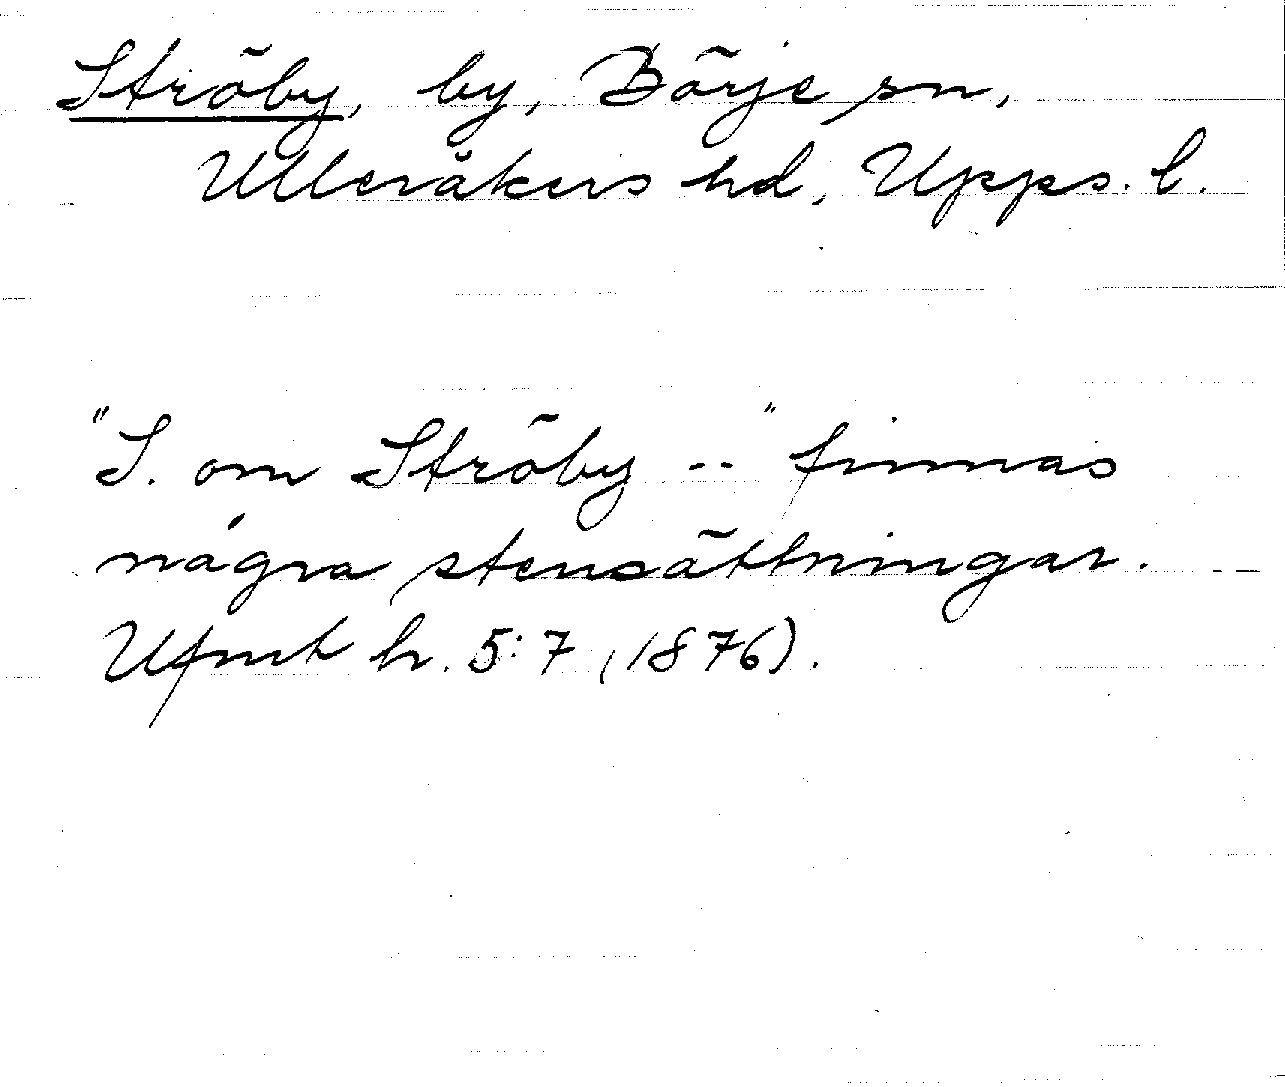 Ströby, by, Börje sn,
Ulleråkers hd, Upps. l.
"S. om Ströby --" finnas
några stensättningar.
Ufmt h. 5:7 (1876).